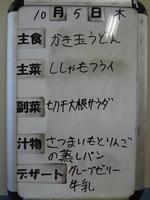 10月5日木
主食 かき玉うどん
主菜 ししゃもフライ
副菜 切干大根サラダ
汁物 さつまいもとりんご
の蒸しパン
デザート グレープゼリー
牛乳